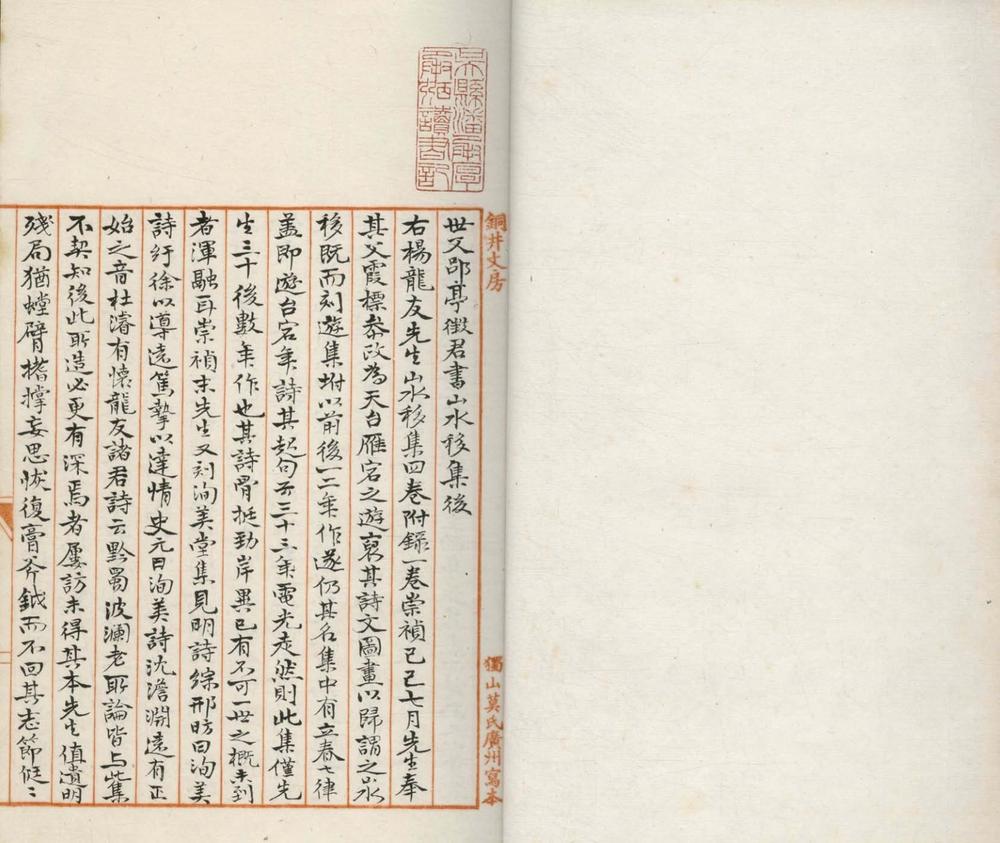 吴縣潘承厚
承弼讀書記
銅井文房
獨山莫氏廣州寫本
世父郘亭徵君書山水移集後
右楊龍友先生山水移集四卷附錄一卷崇禎己巳七月先生奉
其父霞標叅政為天台雁宕之遊裒其詩文圖畫以歸謂之山水
移既而刻遊集坿以前後一二年作遂仍其名集中有立春七律
盖即遊台宕年詩其起句云三十三年電光走然則此集僅先
生三十後數年作也其詩骨挺勁岸異已有不可一世之概未到
者渾融耳崇禎末先生又刻洵美堂集見明詩綜邢昉曰洵美
詩紆徐以導遠篤摯以達情史元曰洵美詩沈澹淵遠有正
始之音杜濬有懷龍友諸君詩云黔蜀波瀾老所論皆与此集
不契知後此所造必更有深焉者屢訪未得其本先生值遺明
殘局猶螳臂搘撐妄思恢復膏斧鉞而不回其志節侹〻